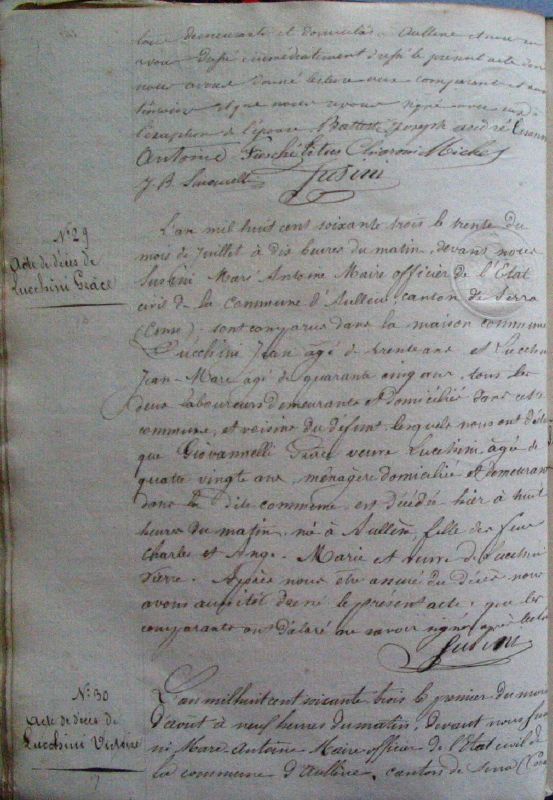 tous demeurants et domiciliés à Aullene et nous en
avons dressé immédiatement le présent acte dont
nous avons donné lecture aux comparants et aux
témoins et que nous avons signé avec eux à
l'exception de l'épouse Battesti Joseph andré
Antoine
J. B.
Susini
N° 29
Acte de décès de
Lucchini Grâce
L'an mil huit cent soixante trois le trente du
mois de Juillet à dix heures du matin, devant nous
Susini Marc Antoine Maire officier de l'Etat
civil de la commune d'Aullene canton de Serra
(Corse) sont comparus dans la maison commune
Lucchini Jean âgé de trente ans et Lucchini
Jean-Marc agé de quarante cinq ans, tous les
deux laboureurs demeurants et domiciliés dans cette
commune, et voisins du défunt lesquels nous ont déclaré
que Giovannelli Grace veuve Lucchini âgée de
quatre vingts ans, ménagère domiciliée et demeurant
dans la dite commune est décédé hier à huit
heures du matin, né à Aullène, fille des feus
Charles et Ange-Marie et veuve de Lucchini
Pierre. Après nous être assuré du décès nous
avons aussitôt dressé le présent acte, que les
comparants ont déclaré ne savoir signer après lecture
Susini
N° 30
Acte de décès de
Lucchini Victoire
L'an mil huit cent soixante trois le premier du mois
d'août à neuf heures du matin, devant nous Susi
ni Marc-Antoine Maire officier de l'Etat civil de
la commune d'Aullène, canton de Serra (Corse